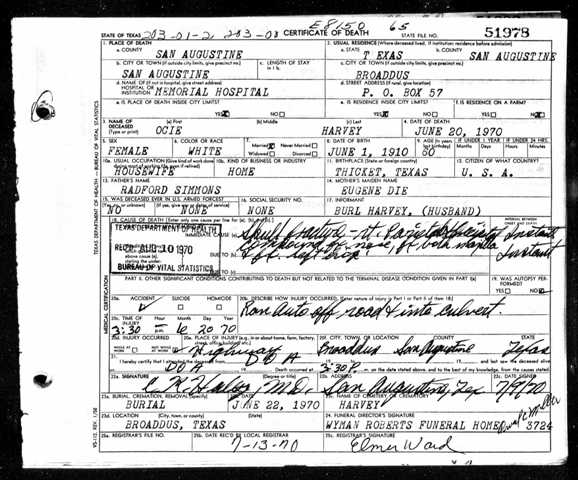 203-01-2, 203-08 E8150 65
STATE OF TEXAS CERTIFICATE OF DEATH STATE FILE NO. 51978
1. PLACE OF DEATH 2. USUAL RESIDENCE (Where deceased lived. If institution: residence before admission)
a. COUNTY SAN AUGUSTINE a. STATE TEXAS b. COUNTY SAN AUGUSTINE
b. CITY OR TOWN (If outside city limits, give precinct no.) c. LENGTH OF STAY c. CITY OR TOWN (If outside city limits, give precinct no.)
SAN AUGUSTINE BROADDUS
d. NAME OF (If not in hospital, give street address) HOSPITAL OR INSTITUTION MEMORIAL HOSPITAL d. STREET ADDRESS (If rural, give location) P. O. BOX 57
e. IS PLACE OF DEATH INSIDE CITY LIMITS? YES NO e. IS RESIDENCE INSIDE CITY LIMITS? YES NO f. IS RESIDENCE ON A FARM? YES NO
3. NAME OF DECEASED (Type or print) (a) First OCIE (b) Middle (c) Last HARVEY 4. DATE OF DEATH JUNE 20, 1970
5. SEX FEMALE 6. COLOR OR RACE WHITE 7. Married Never Married Widowed Divorced 8. DATE OF BIRTH JUNE 1, 1910 9. AGE 60 IF UNDER 1 YEAR IF UNDER 24 HRS.
10a. USUAL OCCUPATION (Give kind of work done HOUSEWIFE 10b. KIND OF BUSINESS OR INDUSTRY HOME 11. BIRTHPLACE (State or foreign country) THICKET, TEXAS 12. CITIZEN OF WHAT COUNTRY? U. S. A.
13. FATHER'S NAME RADFORD SIMMONS 14. MOTHER'S MAIDEN NAME EUGENE DIE
15. WAS DECEASED EVER IN U.S. ARMED FORCES? NO NONE 16. SOCIAL SECURITY NO. NONE 17. INFORMANT BURL HARVEY, (HUSBAND)
18. CAUSE OF DEATH (Enter only one cause per line for INTERVAL BETWEEN ONSET AND DEATH
TEXAS DEPARTMENT OF HEALTH IMMEDIATE CAUSE Skull fracture Instant
REC'D AUG 10 1970 Compound fx nose, fx both Instant
BUREAU OF VITAL STATISTICS DUE TO fx. left
PART II. OTHER SIGNIFICANT CONDITIONS CONTRIBUTING TO DEATH BUT NOT RELATED TO THE TERMINAL DISEASE CONDITION GIVEN IN PART I(a) 19. WAS AUTOPSY PERFORMED? YES NO
20a. ACCIDENT SUICIDE HOMICIDE 20b. DESCRIBE HOW INJURY OCCURRED. (Enter nature of injury in Part I or Part II of item 18)
Ran auto off road & into culvert.
20c. TIME OF INJURY Hour Month Day Year 3:30 6 20 70
20d. INJURY OCCURRED 20e. PLACE OF INJURY Highway 20f. CITY, TOWN, OR LOCATION COUNTY STATE Broaddus San Augustine Texas
21. I hereby certify that I attended the deceased from DOA
DOA Death occurred at 3:30 P. m. on the date stated above, and to the best of my knowledge, from the causes stated.
22a. SIGNATURE (Degree or title) M.D. 22b. ADDRESS San Augustine, Tex 7/9/70
23a. BURIAL, CREMATION, REMOVAL (Specify) BURIAL 23b. DATE JUNE 22, 1970 23c. NAME OF CEMETERY OR CREMATORY HARVEY
23d. LOCATION (City, town, or county) (State) BROADDUS, TEXAS 24. FUNERAL DIRECTOR'S SIGNATURE WYMAN ROBERTS FUNERAL HOME 3724
25a. REGISTRAR'S FILE NO. 25b. DATE REC'D BY LOCAL REGISTRAR 7-13-70 25c. REGISTRAR'S SIGNATURE Elmer Ward
TEXAS DEPARTMENT OF HEALTH - BUREAU OF VITAL STATISTICS
MEDICAL CERTIFICATION